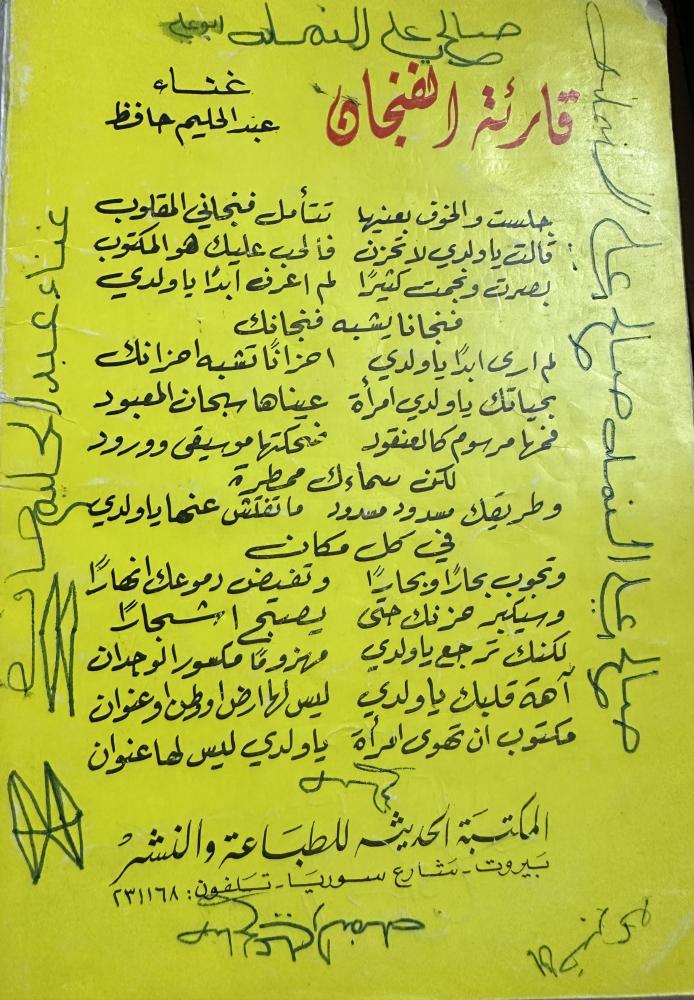 صالح علي النمله ابوعلي
قارئة الفنجان
غناء
عبد الحليم حافظ
جلست والخوف بعينيها تتأمل فنجاني المقلوب
قالت ياولدي لا تحزن فالحب عليك هو المكتوب
بصرت ونجمت كثيرًا لم اعرف أبدًا ياولدي
فنجانا يشبه فنجانك
لم ارى ابدًا ياولدي احزانًا تشبه احزانك
بحياتك ياولدي امرأة عيناها سبحان المعبود
فمها مرسوم كالعنقود ضحكتها موسيقى وورود
لكن سماءك ممطرة
وطريقك مسدود مسدود ما تفتش عنها ياولدي
في كل مكان
وتجوب بحارًا وبحارًا وتفيض دموعك انهارًا
وسيكبر حزنك حتى يصبح اشجارًا
لكنك ترجع ياولدي مهزومًا مكسور الوجدان
آهة قلبك ياولدي ليس لها ارض او طن او عنوان
مكتوب ان تهوى امرأة ياولدي ليس لها عنوان
المكتبة الحديثه للطباعة والنشر
بيروت - شارع سوريا - تلفون: ٢٣١١٦٨
صالح علي النمله
صالح علي النمله صالح علي النمله
غناء عبد الحليم حافظ